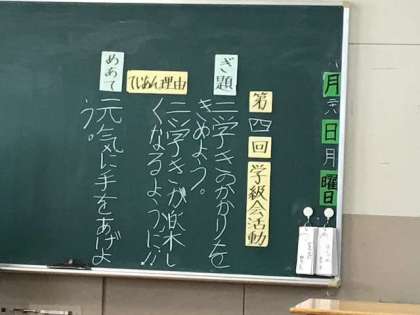 月六日月曜日
第四回学級会活動
ぎ題
三学きのかかりを
きめよう。
ていあん理由
三学きが楽し
くなるように!!
めあて
元気に手をあげよ
う。